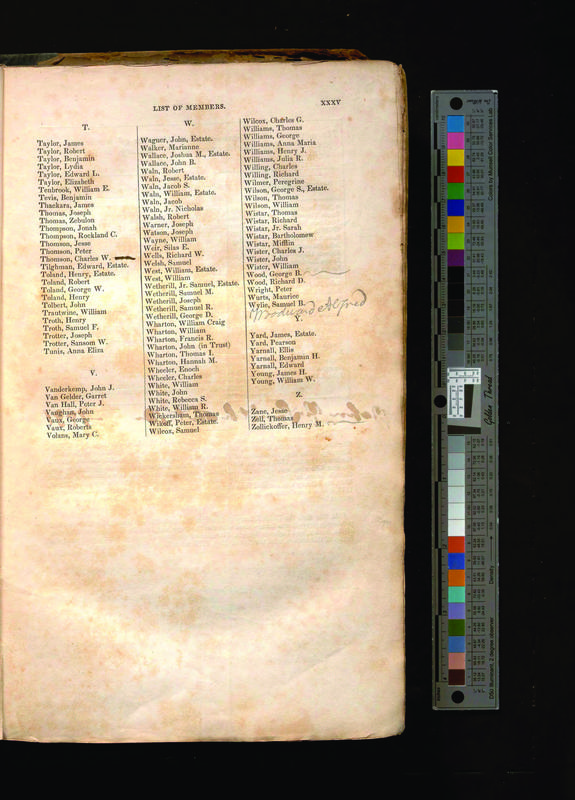 LIST OF MEMBERS.
XXXV
T.
Taylor, James
Taylor, Robert
Taylor, Benjamin
Taylor, Lydia
Taylor, Edward L.
Taylor, Elizabeth
Tenbrook, William E.
Tevis, Benjamin
Thackara, James
Thomas, Joseph
Thomas, Zebulon
Thompson, Jonah
Thompson, Rockland C.
Thomson, Jesse
Thomson, Peter
Thomson, Charles W.
Tilghman, Edward, Estate.
Toland, Henry, Estate.
Toland, Robert
Toland, George W.
Toland, Henry
Tolbert, John
Trautwine, William
Troth, Henry
Troth, Samuel F.
Trotter, Joseph
Trotter, Sansom W.
Tunis, Anna Eliza
V.
Vanderkemp, John J.
Van Gelder, Garret
Van Hall, Peter J.
Vaughan, John
Vaux, George
Vaux, Roberts
Volans, Mary C.
W.
Wagner, John, Estate.
Walker, Marianne
Wallace, Joshua M., Estate.
Wallace, John B.
Waln, Robert
Waln, Jesse, Estate.
Waln, Jacob S.
Waln, William, Estate.
Waln, Jacob
Waln, Jr. Nicholas
Walsh, Robert
Warner, Joseph
Watson, Joseph
Wayne, William
Weir, Silas E.
Wells, Richard W.
Welsh, Samuel
West, William, Estate.
West, William
Wetherill, Jr. Samuel, Estate.
Wetherill, Samuel M.
Wetherill, Joseph
Wetherill, Samuel R.
Wetherill, George D.
Wharton, William Craig
Wharton, William
Wharton, Francis R.
Wharton, John (in Trust)
Wharton, Thomas I.
Wharton, Hannah M.
Wheeler, Enoch
Wheeler, Charles
White, William
White, John
White, Rebecca S.
White, William R.
Wickersham, Thomas
Wikoff, Peter, Estate.
Wilcox, Samuel
Wilcox, Charles G.
Williams, Thomas
Williams, George
Williams, Anna Maria
Williams, Henry J.
Williams, Julia R.
Willing, Charles
Willing, Richard
Wilmer, Peregrine
Wilson, George S., Estate.
Wilson, Thomas
Wilson, William
Wistar, Thomas
Wistar, Richard
Wistar, Jr. Sarah
Wistar, Bartholomew
Wistar, Mifflin
Wister, Charles J.
Wister, John
Wister, William
Wood, George B.
Wood, Richard D.
Wright, Peter
Wurts, Maurice
Wylie, Samuel B.
Alfred
Y.
Yard, James, Estate.
Yard, Pearson
Yarnall, Ellis
Yarnall, Benjamin H.
Yarnall, Edward
Young, James H.
Young, William W.
Z.
Zane, Jesse
Zell, Thomas
Zollickoffer, Henry M.
Golden Thread